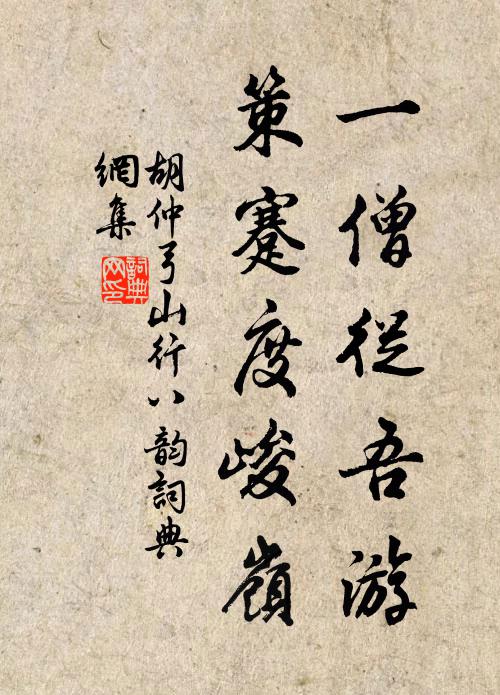 一僧從吾游
策蹇度峻嶺
胡仲弓山行八韵詞典
網集
詞典
网印